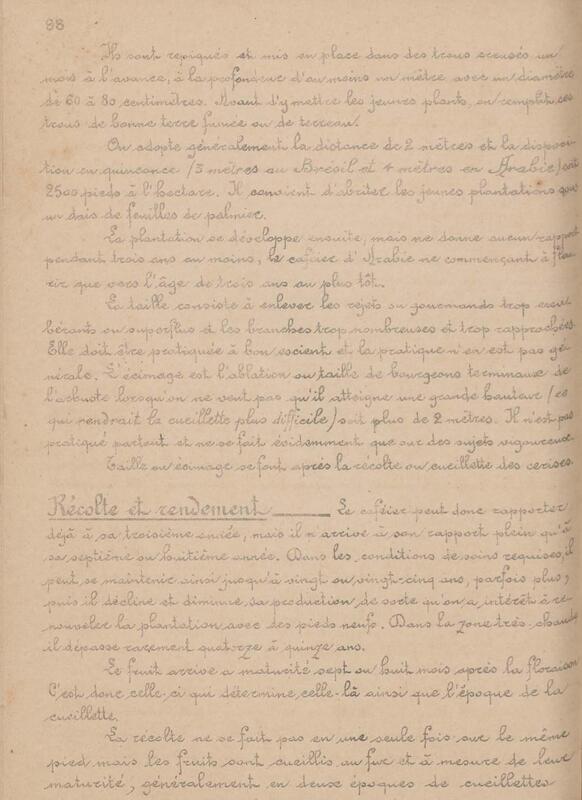 98
Ils sont repiqués et mis en place dans des trous creusés un
mois à l'avance, à la profondeur d'au moins un mètre avec un diamètre
de 60 à 80 centimètres. Avant d'y mettre les jeunes plants, on remplit ces
trous de bonne terre fumée ou de terreau.
On adopte généralement la distance de 2 mètres et la disposi-
tion en quinconce (3 mètres au Brésil et 4 mètres en Arabie) soit
2500 pieds à l'hectare. Il convient d'abriter les jeunes plantations sous
un dais de feuilles de palmier.
La plantation se développe ensuite, mais ne donne aucun rapport
pendant trois ans au moins, le caféier d'Arabie ne commençant à fleu-
rir que vers l'âge de trois ans au plus tôt.
La taille consiste à enlever les rejets ou gourmands trop exu-
bérants ou superflus et les branches trop nombreuses et trop rapprochées.
Elle doit être pratiquée à bon escient et la pratique n'en est pas gé-
nérale. L'écimage est l'ablation ou taille de bourgeons terminaux de
l'arbuste lorsqu'on ne veut pas qu'il atteigne une grande hauteur (ce
qui rendrait la cueillette plus difficile) soit plus de 2 mètres. Il n'est pas
pratiqué partout et ne se fait évidemment que sur des sujets vigoureux.
Taille ou écimage se font après la récolte ou cueillette des cerises.
Récolte et rendement Le caféier peut donc rapporter
déjà à sa troisième année, mais il n'arrive à son rapport plein qu'à
sa septième ou huitième année. Dans les conditions de soins requises, il
peut se maintenir ainsi jusqu'à vingt ou vingt-cinq ans, parfois plus,
puis il décline et diminue sa production de sorte qu'on a intérêt à re-
nouveler la plantation avec des pieds neufs. Dans la zone très chaude
il dépasse rarement quatorze à quinze ans.
Le fruit arrive à maturité sept ou huit mois après la floraison
C'est donc celle-ci qui détermine celle-là ainsi que l'époque de la
cueillette.
La récolte ne se fait pas en une seule fois sur le même
pied mais les fruits sont cueillis au fur et à mesure de leur
maturité, généralement en deux époques de cueillettes